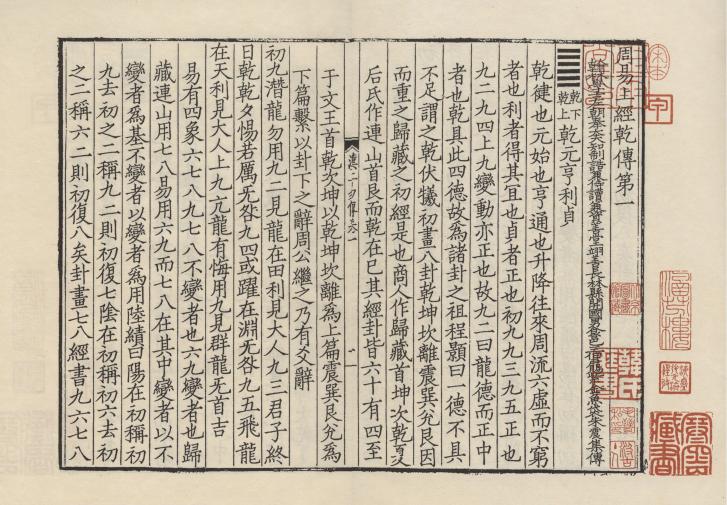 周易上經乾傳第一
翰林學士左朝奉大夫知制誥兼侍讀兼資善堂翊善長林縣開國男食邑三百戶賜紫金魚袋朱震集傳
乾下
乾上
乾元亨利貞
乾健也元始也亨通也升降往來周流六虛而不窮
者也利者得其宜也貞者正也初九九三九五正也
九二九四上九變動亦正也故九二曰龍德而正中
者也乾具此四德故為諸卦之祖程顥曰一德不具
不足謂之乾伏犧初畫八卦乾坤坎離震巽艮兌因
而重之歸藏之初經是也商人作歸藏首坤次乾夏
后氏作連山首艮而乾在巳其經卦皆六十有四至
于文王首乾次坤以乾坤坎離為上篇震巽艮兌為
下篇繫以卦下之辭周公繼之乃有爻辭
初九潛龍勿用九二見龍在田利見大人九三君子終
日乾乾夕惕若厲无咎九四或躍在淵无咎九五飛龍
在天利見大人上九亢龍有悔用九見群龍无首吉
易有四象六七八九七八不變者也六九變者也歸
藏連山用七八易用六九而七八在其中變者以不
變者為基不變者以變者為用陸績曰陽在初稱初
九去初之二稱九二則初復七陰在初稱初六去初
之二稱六二則初復八矣卦畫七八經書九六七八